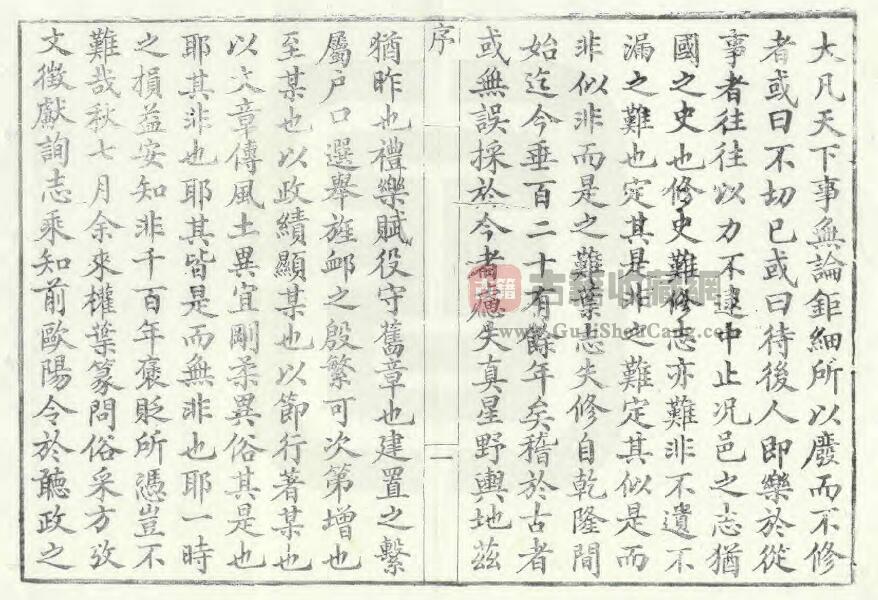 大凡天下事無論鉅細所以廢而不修
者或曰不切已或曰待後人即樂於從
事者往往以力不逮中止况邑之志猶
國之史也修史難修志亦難非不遺不
漏之難也定其是非之難定其似是而
非似非而是之難葉志失修自乾隆間
始迄今垂百二十有餘年矣稽於古者
或無誤採於今者慮失真星野輿地茲
序
一
猶昨也禮樂賦役守舊章也建置之繫
屬戶口選舉旌卹之殷繁可次第增也
至某也以政績顯某也以節行著某也
以文章傳風土異宜剛柔異俗其是也
耶其非也耶其皆是而無非也耶一時
之損益安知非千百年褒貶所憑豈不
難哉秋七月余來權葉篆問俗采方攷
文徵獻詢志乘知前歐陽令於聽政之
古籍
古籍收藏網
www.GuJiShouCang.com